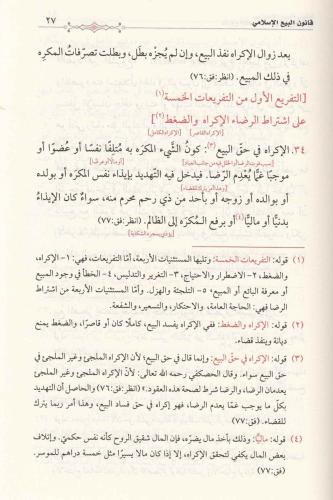 قانون البيع الإسلامي
٢٧
بعد زوال الإكراه نفذ البيع، وإن لم يُجزْه بطَل، وبطلت تصرّفاتُ المكرِه
في ذلك المبيع. (انظر: فق:٧٦)
[التفريع الأول من التفريعات الخمسة(١)
على اشتراط الرضاء الإكراه والضغط(٢)]
[الإكراه القاصر] [الإكراه الكامل]
٣٤. الإكراه في حقّ البيع(٣): كونُ الشيء المكرَه به مُتلِفًا نفسًا أو عُضوًا أو
موجبًا غمًّا يُعْدِم الرضا. فيدخل فيه التهديد بإيذاء نفس المكرَه أو بولده
أو بوالده أو زوجه أو بأحد من ذي رحم محرم منه، سواءٌ كان الإيذاءُ
بدنيًّا أو ماليًّا(٤) أو برفع المُكرَه إلى الظالم. (انظر: فق:٧٧)
(١) قوله: التفريعات الخمسة: وتليها المستثنيات الأربعة، أمّا التفريعات، فهي: ١- الإكراه،
والضغط، ٢- الاضطرار والاحتياج، ٣- التغرير والتدليس، ٤- الخطأ في وجود المبيع
أو معرفة البائع أو المبيع، ٥- التلجئة والهزل. وأمّا المستثنيات الأربعة من اشتراط
الرضا فهي: الحاجة العامة، والاحتكار، والتسعير، والشفعة.
(٢) قوله: الإكراه والضغط: ففي الإكراه يفسد البيع، كاملًا كان أو قاصرًا، والضغط يمنع
ديانة وينفذ قضاء.
(٣) قوله: الإكراه في حقّ البيع: وإنما قال في حق البيع، لأن الإكراه الملجئ وغير الملجئ في
حق البيع سواء. وقال الحصكفي رحمه الله تعالى: «لأن الإكراه الملجئ وغير الملجئ
يعدمان الرضا، والرضا شرط لصحة هذه العقود.» (انظر: فق:٧٦) والحاصل أن التهديد
بكلّ ما يوجب غمًّا يعدم الرضا، فهو إكراه في حق فساد البيع، وهذا أمر ربما يترك
للقضاء. (فق:٧٧)
(٤) قوله: ماليًّا: وذلك بأخذ مال يضرّه، فإن المال شقيق الروح كأنه نفس حكميّ، وإتلاف
بعض المال يكفي لتحقق الإكراه، إلا إذا كان مالا يسيرًا مثل خمسة دراهم للموسر.
(فق:٧٧)